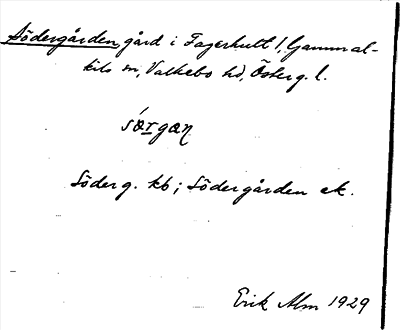 Södergården, gård i Fagerhult 1, Gammal-
kils sn, Valkebo hd, Österg. l.
sǿrgaɳ
Söderg. kb; Södergården ek.
Erik Alm 1929